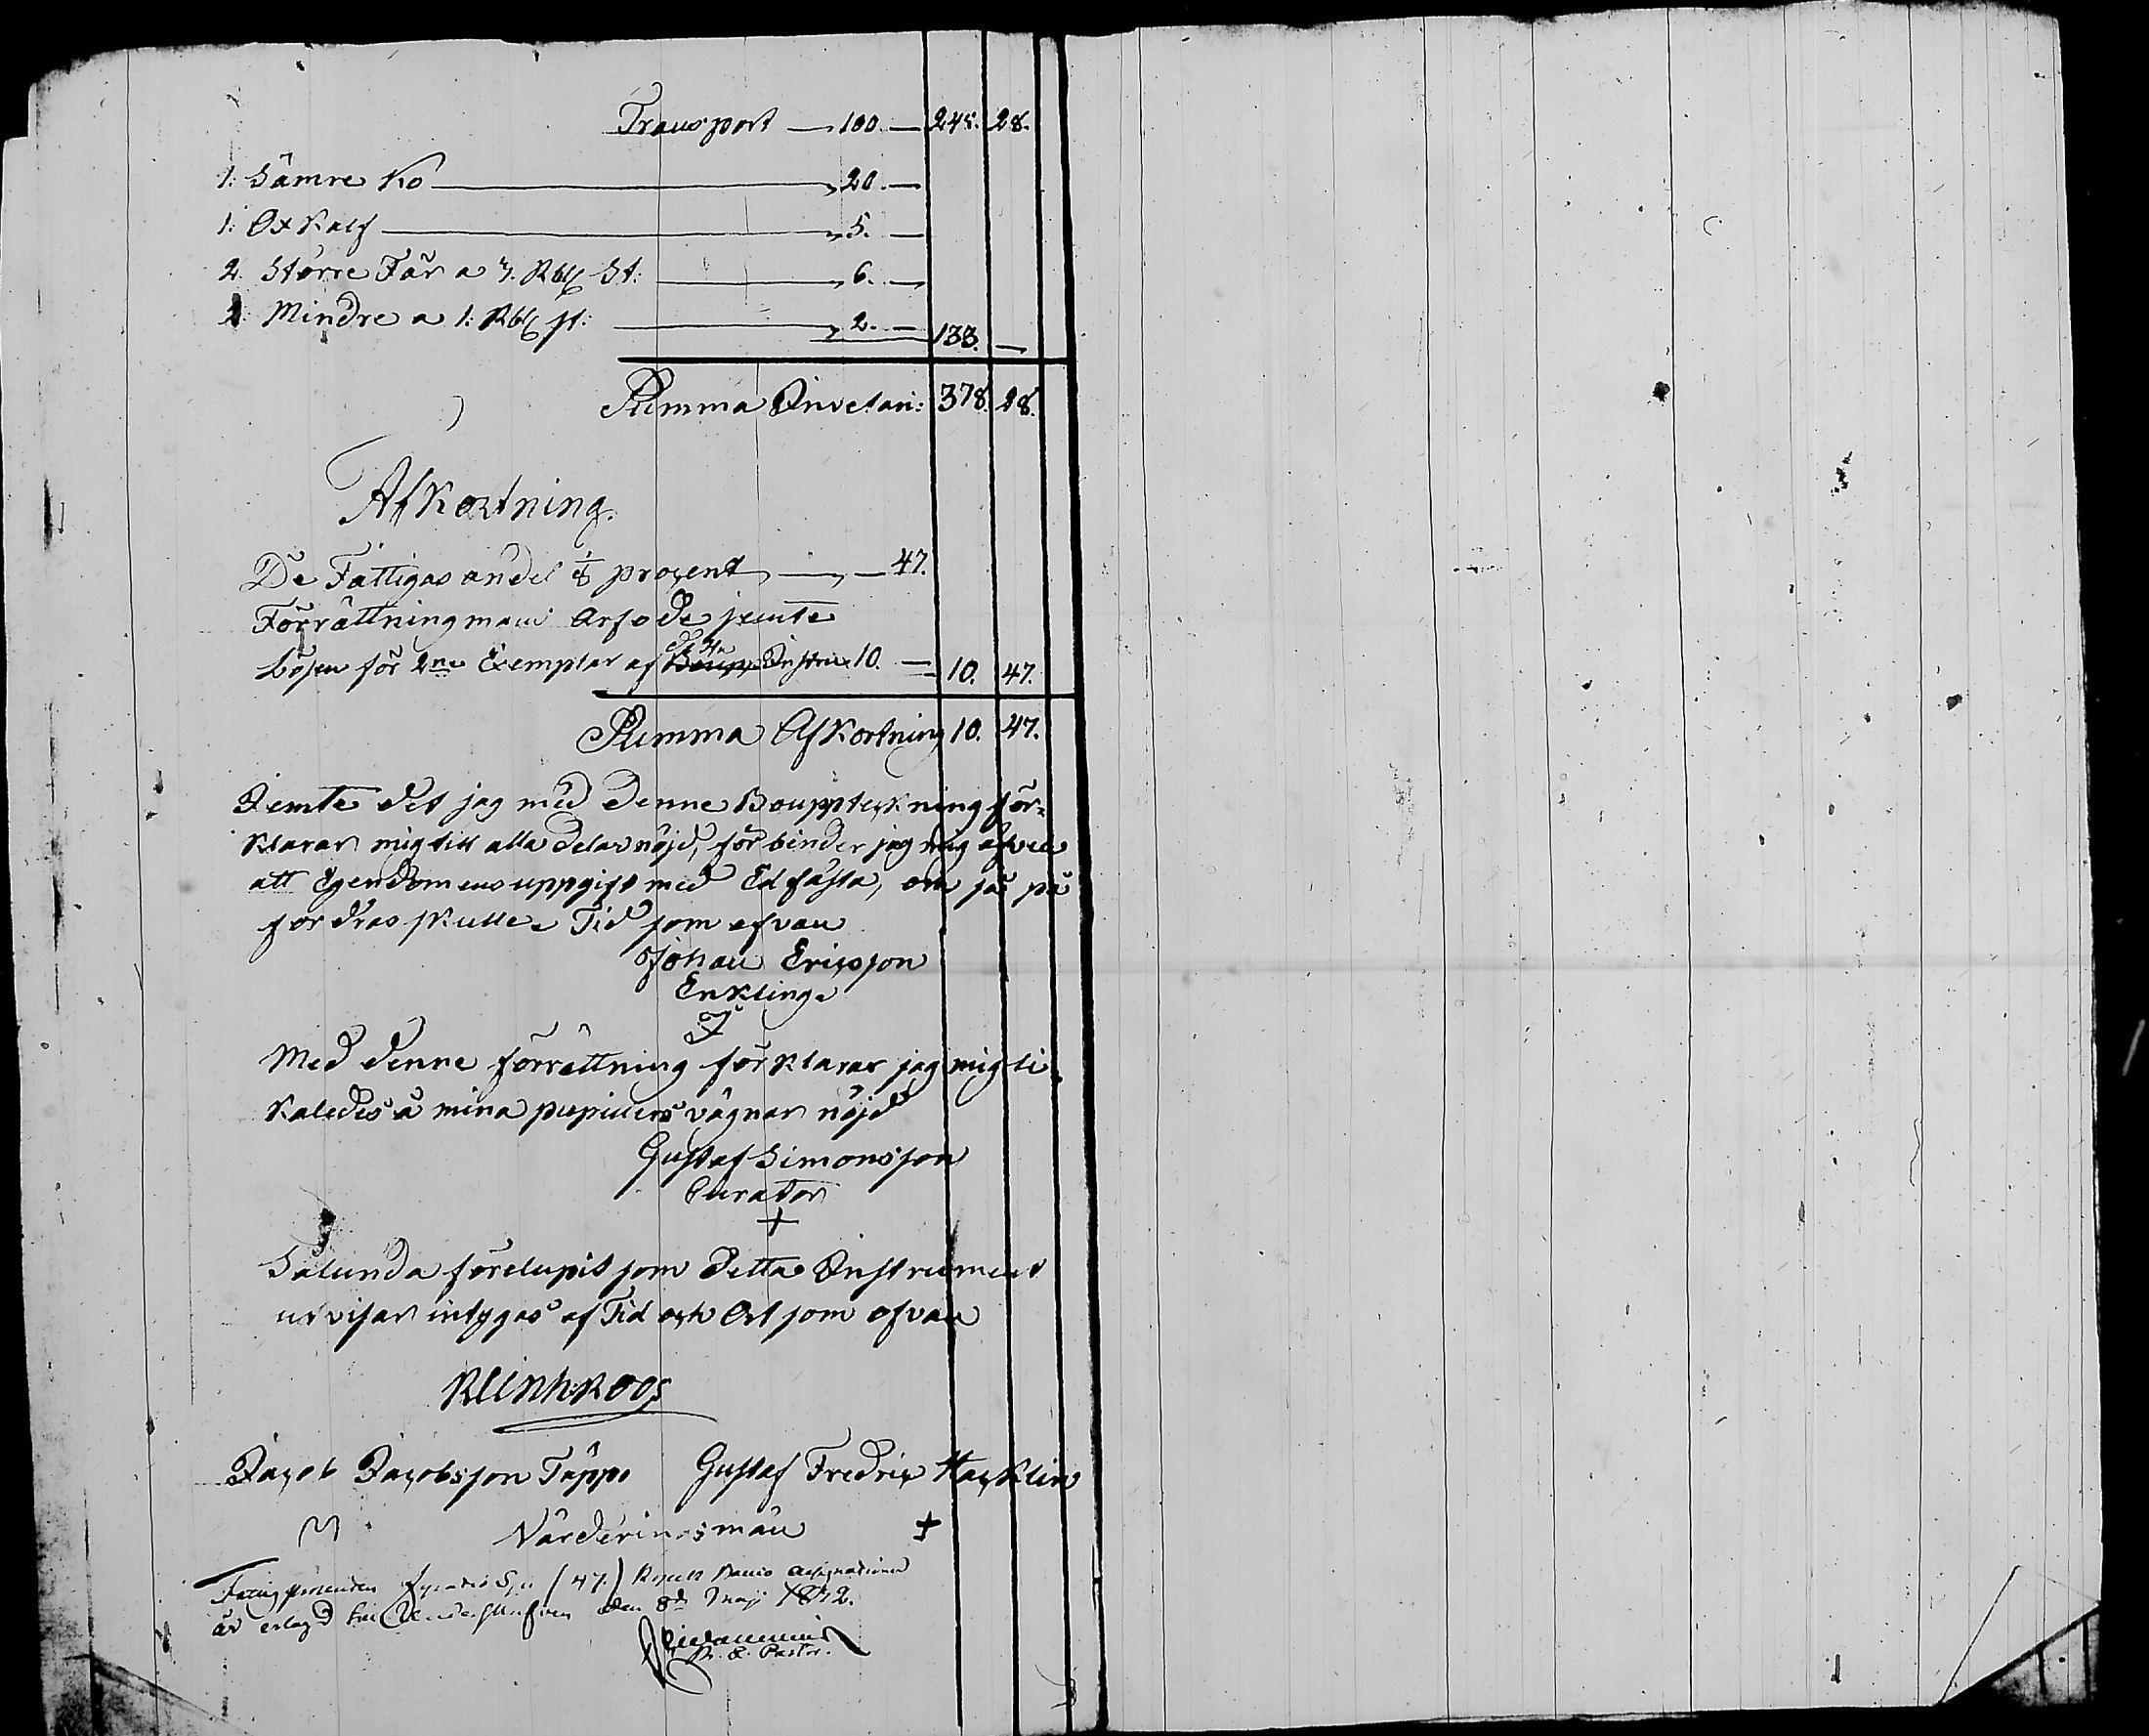 Transport — 100. — 245. 28.
1: Sämre Ko — 20. —
1: Oxkalf — 5. —
2. Större Får a 3. Rbl St: — 6. —
2. Mindre a 1: Rbl st: — 2. — 133. —
Summa Invetari: 378. 28.
Afkortning.
De Fattigas andel 1/8 procent — 47.
Förrättningman Arfode jemte
lösen för 2ne Exemplar af detta Instru 10. — 10. 47.
Summa Afkortning 10. 47.
Jemte det jag med denne Bouppteckning för-
klarar mig till alla delar nöjd, förbinder jag mig äfven
att Egendomens uppgift med Ed fästa, om så på
fordras skulle Tid som ofvan
Johan Ericsson
Enklinge
Med denne förrättning förklarar jag mig li
kaledes å mina pupillers vägnar nöjd
Gustaf Simonsson
Curator
+
Sålunda förelupit som detta Instrument
utvisar intygas af Tid och Ort som ofvan
Reinh: Roos
Jacob Jacobsson Täppo Gustaf Fredric Hacklin
Värderingsmän +
Fattigprocenten (47.) Kopek Banco Assignationer
är erlagd den 8de Maji 1812.
Pastor.